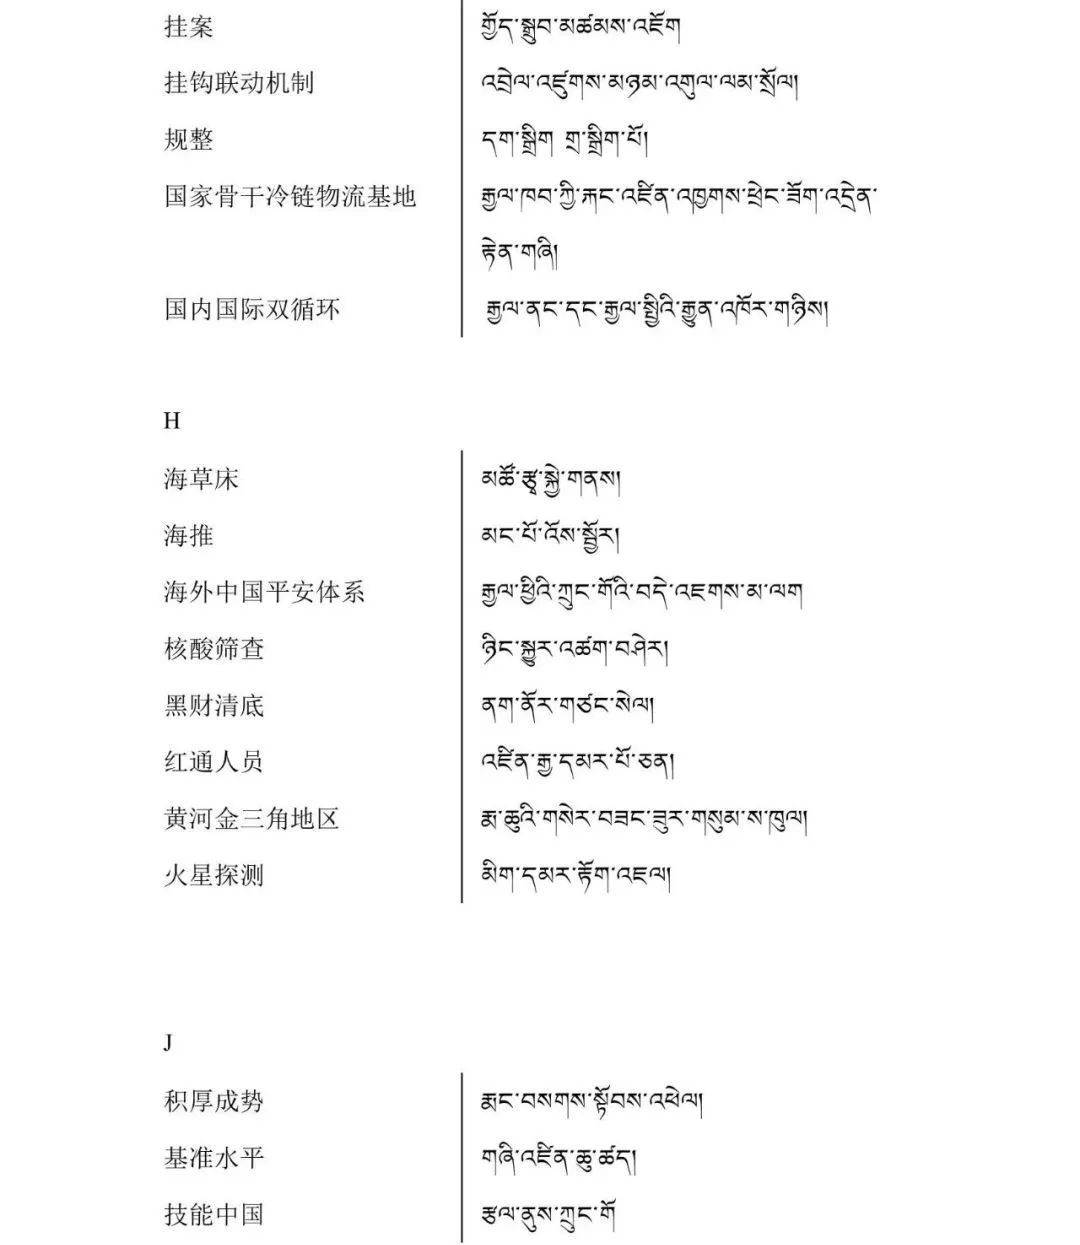 挂案 གྱོད་སྒྲུབ་མཚམས་འཇོག
挂钩联动机制 འབྲེལ་འཛུགས་མཉམ་འགུལ་ལམ་སྲོལ།
规整 དག་སྒྲིག གྲ་སྒྲིག་པོ།
国家骨干冷链物流基地 རྒྱལ་ཁབ་ཀྱི་རྐང་འཛིན་འཁྱགས་ཕྲེང་ཟོག་འདྲེན་
རྟེན་གཞི།
国内国际双循环 རྒྱལ་ནང་དང་རྒྱལ་སྤྱིའི་རྒྱུན་འཁོར་གཉིས།
H
海草床 མཚོ་རྩྭ་སྐྱེ་གནས།
海推 མང་པོ་འོས་སྦྱོར།
海外中国平安体系 རྒྱལ་ཕྱིའི་ཀྲུང་གོའི་བདེ་འཇགས་མ་ལག
核酸筛查 ཉིང་སྐྱུར་འཚག་བཤེར།
黑财清底 ནག་ནོར་གཙང་སེལ།
红通人员 འཛིན་རྒྱ་དམར་པོ་ཅན།
黄河金三角地区 རྨ་ཆུའི་གསེར་བཟང་ཟུར་གསུམ་ས་ཁུལ།
火星探测 མིག་དམར་རྟོག་འཇལ།
J
积厚成势 རྨང་བསགས་སྟོབས་འཕེལ།
基准水平 གཞི་འཛིན་ཆུ་ཚད།
技能中国 རྩལ་ནུས་ཀྲུང་གོ